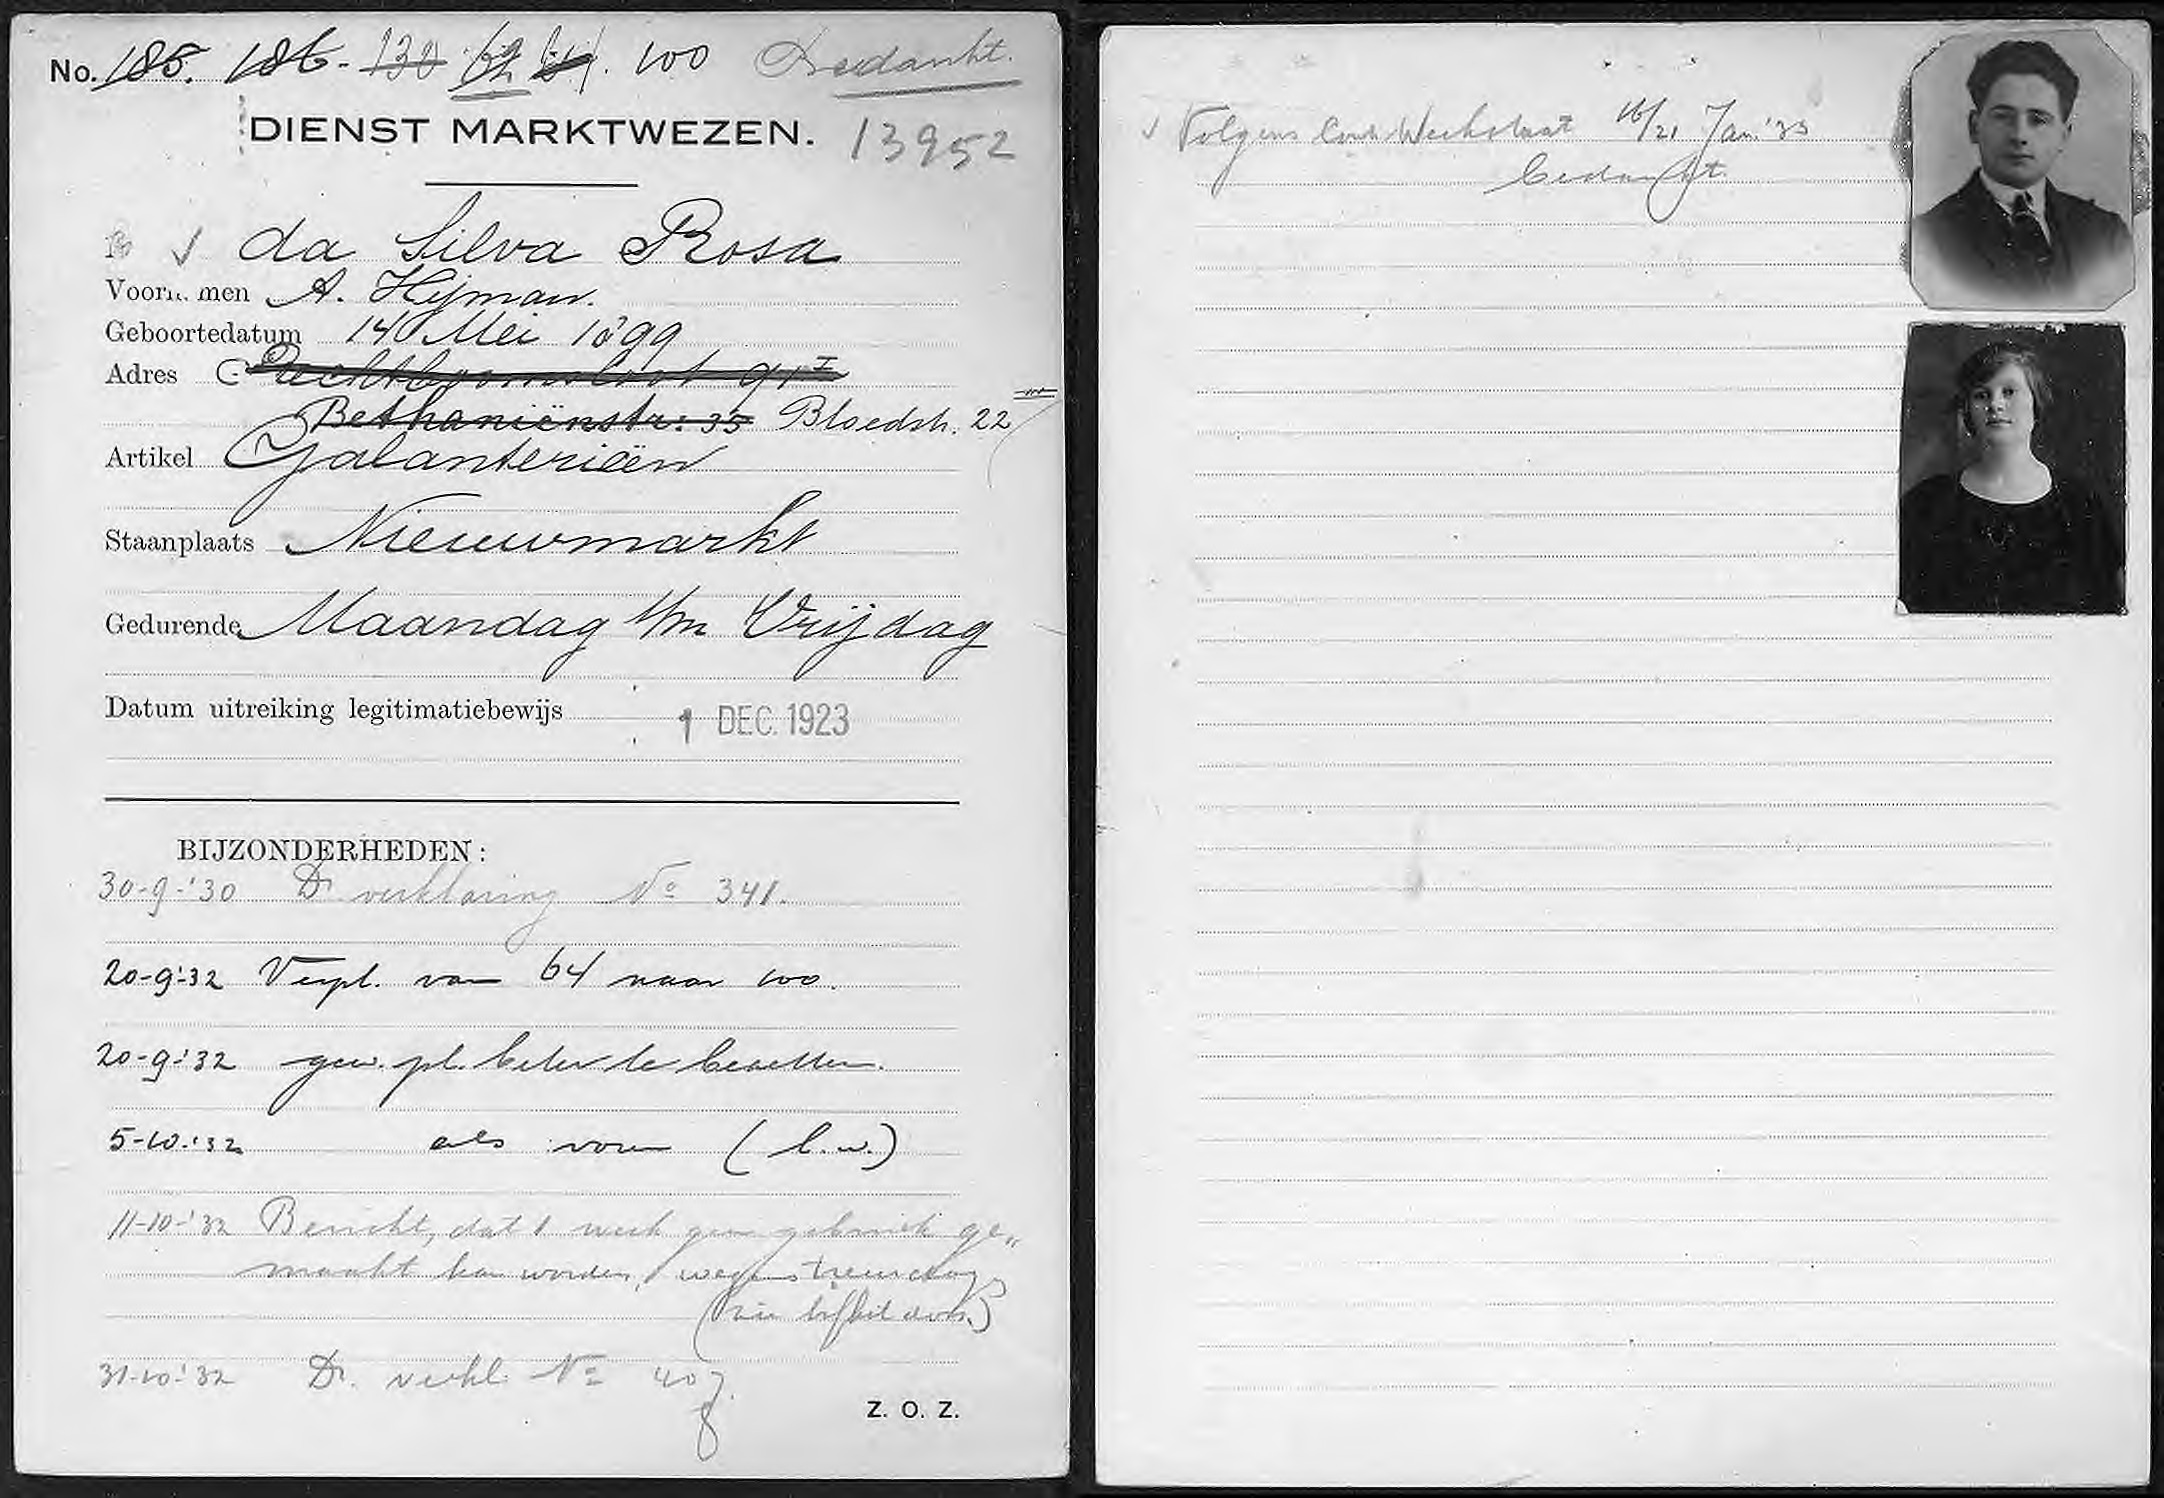 No. 185. 186. 130 62 64. 100 Bedankt.
DIENST MARKTWEZEN. 13952
da Silva Rosa
Voornamen A. Hijman.
Geboortedatum 14 Mei 1899
Adres Rechtboomsloot 91 I
Bethaniënstr: 35 Bloedstr. 22 III
Artikel Galanteriën
Staanplaats Nieuwmarkt
Gedurende Maandag t/m Vrijdag
Datum uitreiking legitimatiebewijs 1 DEC. 1923
BIJZONDERHEDEN:
30-9-'30 Dr verklaring No 341.
20-9-'32 Verpl. van 64 naar 100.
20-9-'32 gew. pl. beter te bezetten.
5-10-'32 als voren (l.w.)
11-10-'32 Bericht, dat 1 week geen gebruik ge„
maakt kan worden, wegens treurdag
(zie
31-10-'32 Dr. verkl. No 407.
Z. O. Z.
Volgens Contr Weekstaat 16/21 Jan. '33
bedankt.